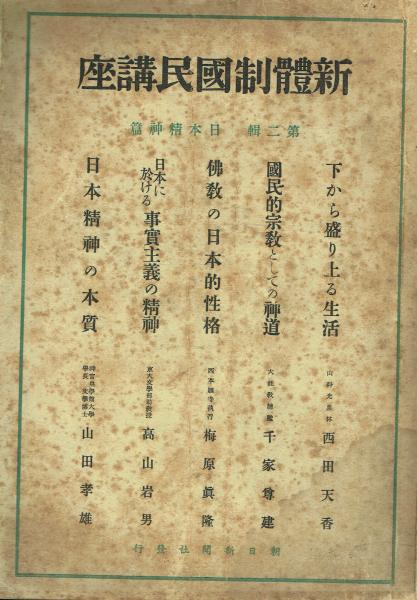 新體制國民講座
第二輯 日本精神篇
下から盛り上る生活
山科光泉林 西田天香
國民的宗教としての神道
大社教總監 千家尊建
佛教の日本的性格
西本願寺執行 梅原眞隆
日本に於ける事實主義の精神
京大文學部助教授 高山岩男
日本精神の本質
神宮皇學館大學
學長 文學博士 山田孝雄
朝日新聞社發行